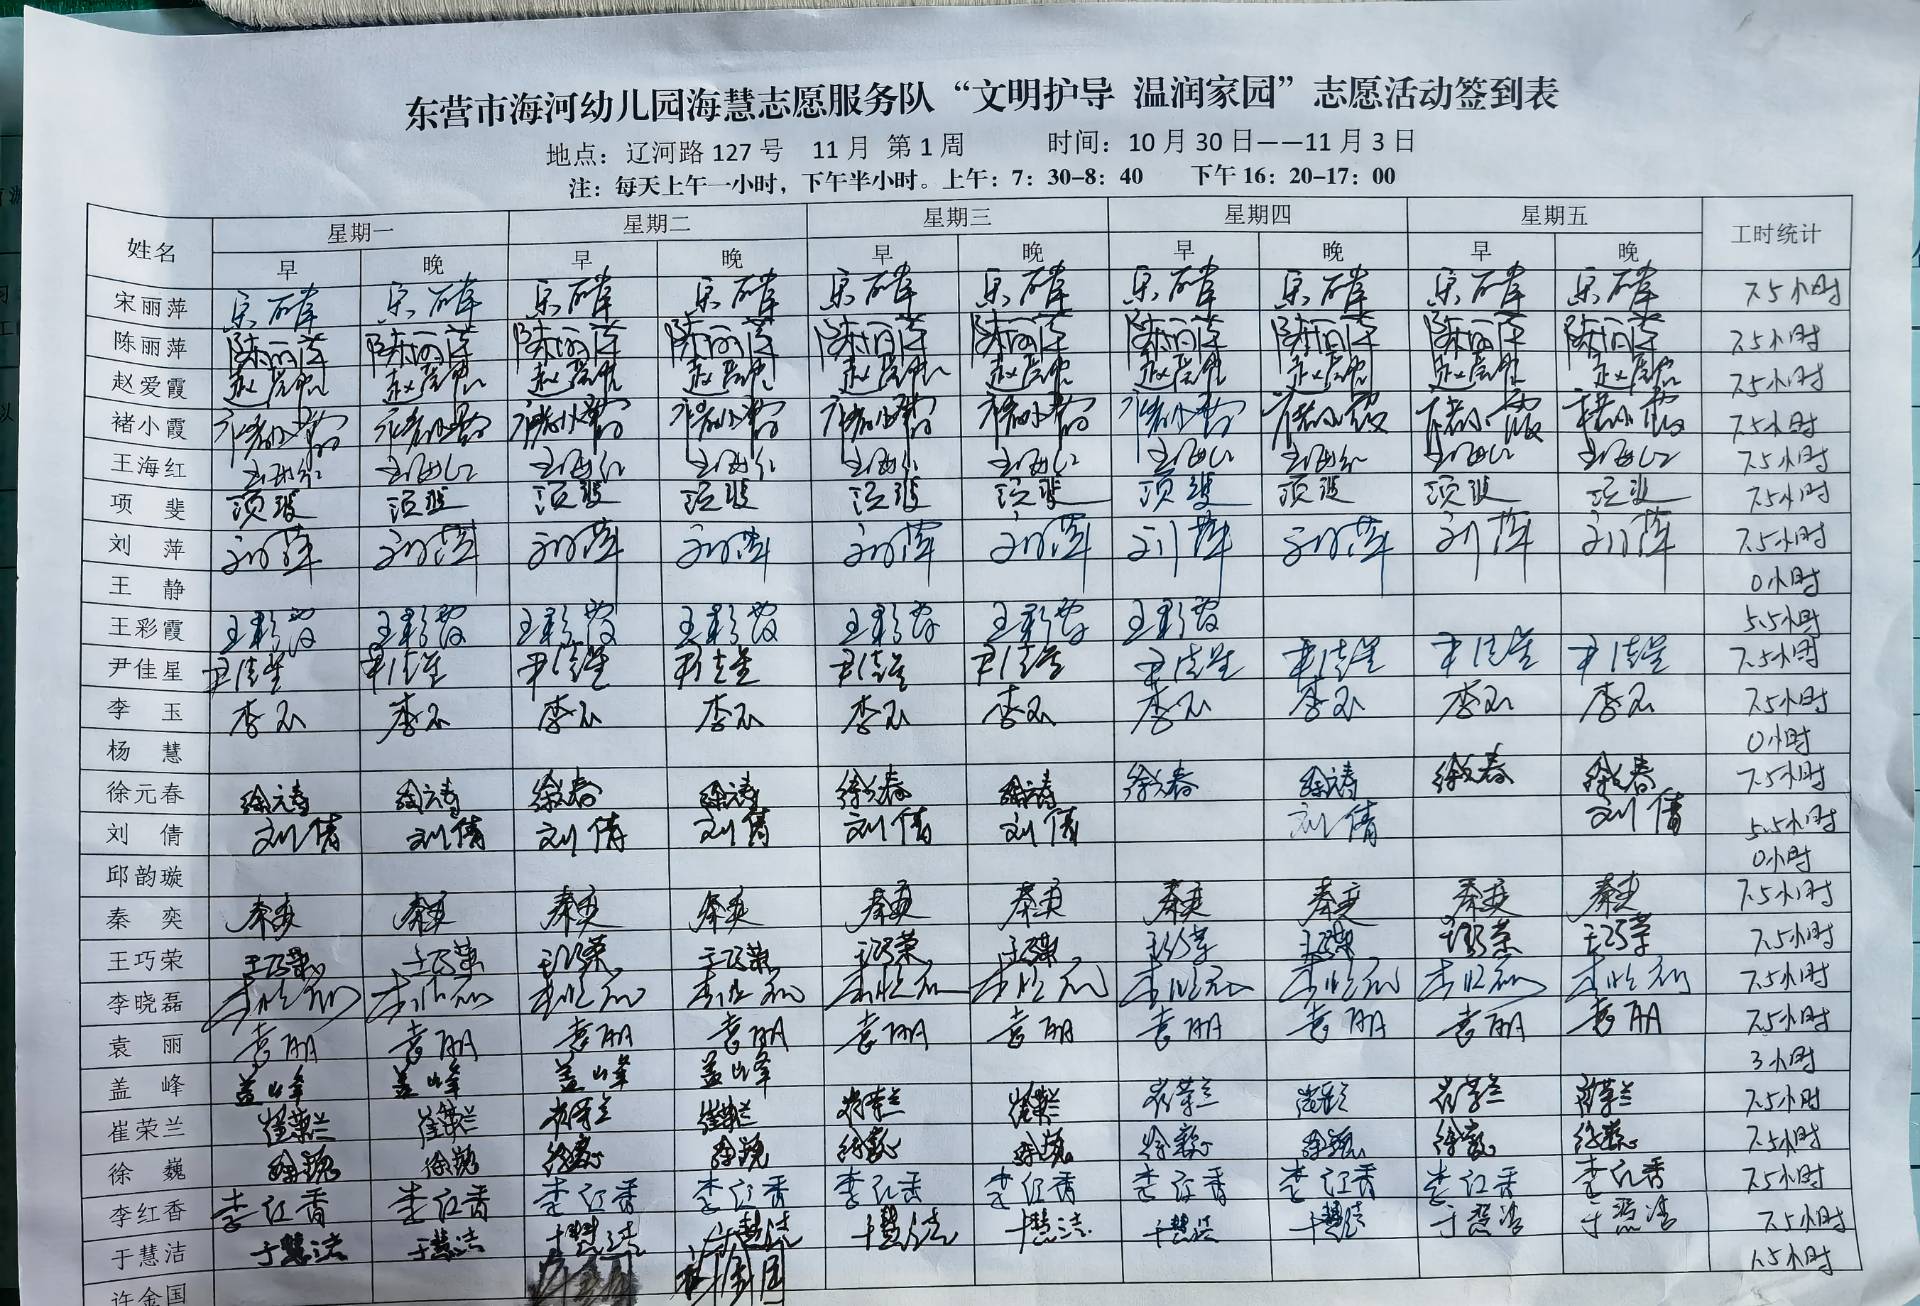 东营市海河幼儿园海慧志愿服务队“文明护导 温润家园”志愿活动签到表
地点：辽河路 127 号 11 月 第 1 周 时间：10 月 30 日——11 月 3 日
注：每天上午一小时，下午半小时。上午：7：30-8：40 下午 16：20-17：00
姓名 星期一 星期二 星期三 星期四 星期五 工时统计
早 晚 早 晚 早 晚 早 晚 早 晚
宋丽萍 7.5小时
陈丽萍 陈丽萍 陈丽萍 陈丽萍 陈丽萍 陈丽萍 陈丽萍 陈丽萍 陈丽萍 陈丽萍 陈丽萍 7.5小时
赵爱霞 7.5小时
褚小霞 褚小霞 褚小霞 褚小霞 褚小霞 褚小霞 褚小霞 褚小霞 褚小霞 褚小霞 褚小霞 7.5小时
王海红 王海红 王海红 王海红 王海红 王海红 王海红 王海红 王海红 王海红 王海红 7.5小时
项斐 项斐 项斐 项斐 项斐 项斐 项斐 项斐 项斐 项斐 项斐 7.5小时
刘萍 刘萍 刘萍 刘萍 刘萍 刘萍 刘萍 刘萍 刘萍 刘萍 刘萍 7.5小时
王静 0小时
王彩霞 王彩霞 王彩霞 王彩霞 王彩霞 王彩霞 王彩霞 王彩霞 5.5小时
尹佳星 尹佳星 尹佳星 尹佳星 尹佳星 尹佳星 尹佳星 尹佳星 尹佳星 尹佳星 尹佳星 7.5小时
李玉 李玉 李玉 李玉 李玉 李玉 李玉 李玉 李玉 李玉 李玉 7.5小时
杨慧 0小时
徐元春 徐元春 徐元春 徐元春 徐元春 徐元春 徐元春 徐元春 徐元春 徐元春 徐元春 7.5小时
刘倩 刘倩 刘倩 刘倩 刘倩 刘倩 刘倩 刘倩 刘倩 5.5小时
邱韵璇 0小时
秦奕 秦奕 秦奕 秦奕 秦奕 秦奕 秦奕 秦奕 秦奕 秦奕 秦奕 7.5小时
王巧荣 王巧荣 王巧荣 王巧荣 王巧荣 王巧荣 王巧荣 王巧荣 王巧荣 王巧荣 王巧荣 7.5小时
李晓磊 李晓磊 李晓磊 李晓磊 李晓磊 李晓磊 李晓磊 李晓磊 李晓磊 李晓磊 李晓磊 7.5小时
袁丽 袁丽 袁丽 袁丽 袁丽 袁丽 袁丽 袁丽 袁丽 袁丽 袁丽 7.5小时
盖峰 盖峰 盖峰 盖峰 盖峰 3小时
崔荣兰 崔荣兰 崔荣兰 崔荣兰 崔荣兰 崔荣兰 崔荣兰 崔荣兰 崔荣兰 崔荣兰 崔荣兰 7.5小时
徐巍 徐巍 徐巍 徐巍 徐巍 徐巍 徐巍 徐巍 徐巍 徐巍 徐巍 7.5小时
李红香 李红香 李红香 李红香 李红香 李红香 李红香 李红香 李红香 李红香 李红香 7.5小时
于慧洁 于慧洁 于慧洁 于慧洁 于慧洁 于慧洁 于慧洁 于慧洁 于慧洁 于慧洁 于慧洁 7.5小时
许金国 许金国 1.5小时